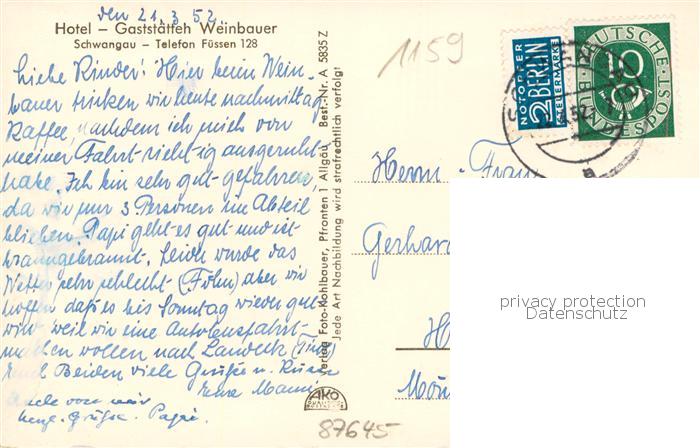 den 21.3.52
Hotel – Gaststätteh Weinbauer
Schwangau – Telefon Füssen 128
Liebe Kinder! Hier beim Wein-
bauer trinken wir heute nachmittag
Kaffee, nachdem ich mich von
meiner Fahrt richtig ausgeruht
habe. Ich bin sehr gut gefahren,
da wir nur 3 Personen im Abteil
blieben. Papi geht es gut und ist
braungebrannt. Leider wurde das
Wetter sehr schlecht (Föhn) aber wir
hoffen daß es bis Sonntag wieder gut
wird, weil wir eine Autobusfahrt
machen wollen nach Landeck (Tirol)
Euch Beiden viele Grüße u. Küsse
Eure Mammi
Auch von mir
herzl. Grüße. Papi.
Verlag Foto-Kohlbauer, Pfronten 1 Allgäu Best.-Nr. A 5835 Z
Jede Art Nachbildung wird strafrechtlich verfolgt
AKO
1159
NOTOPFER
2 BERLIN
STEUERMARKE
DEUTSCHE
10
BUNDESPOST
Herrn - Frau
Gerhar
H
privacy protection
Datenschutz
87645